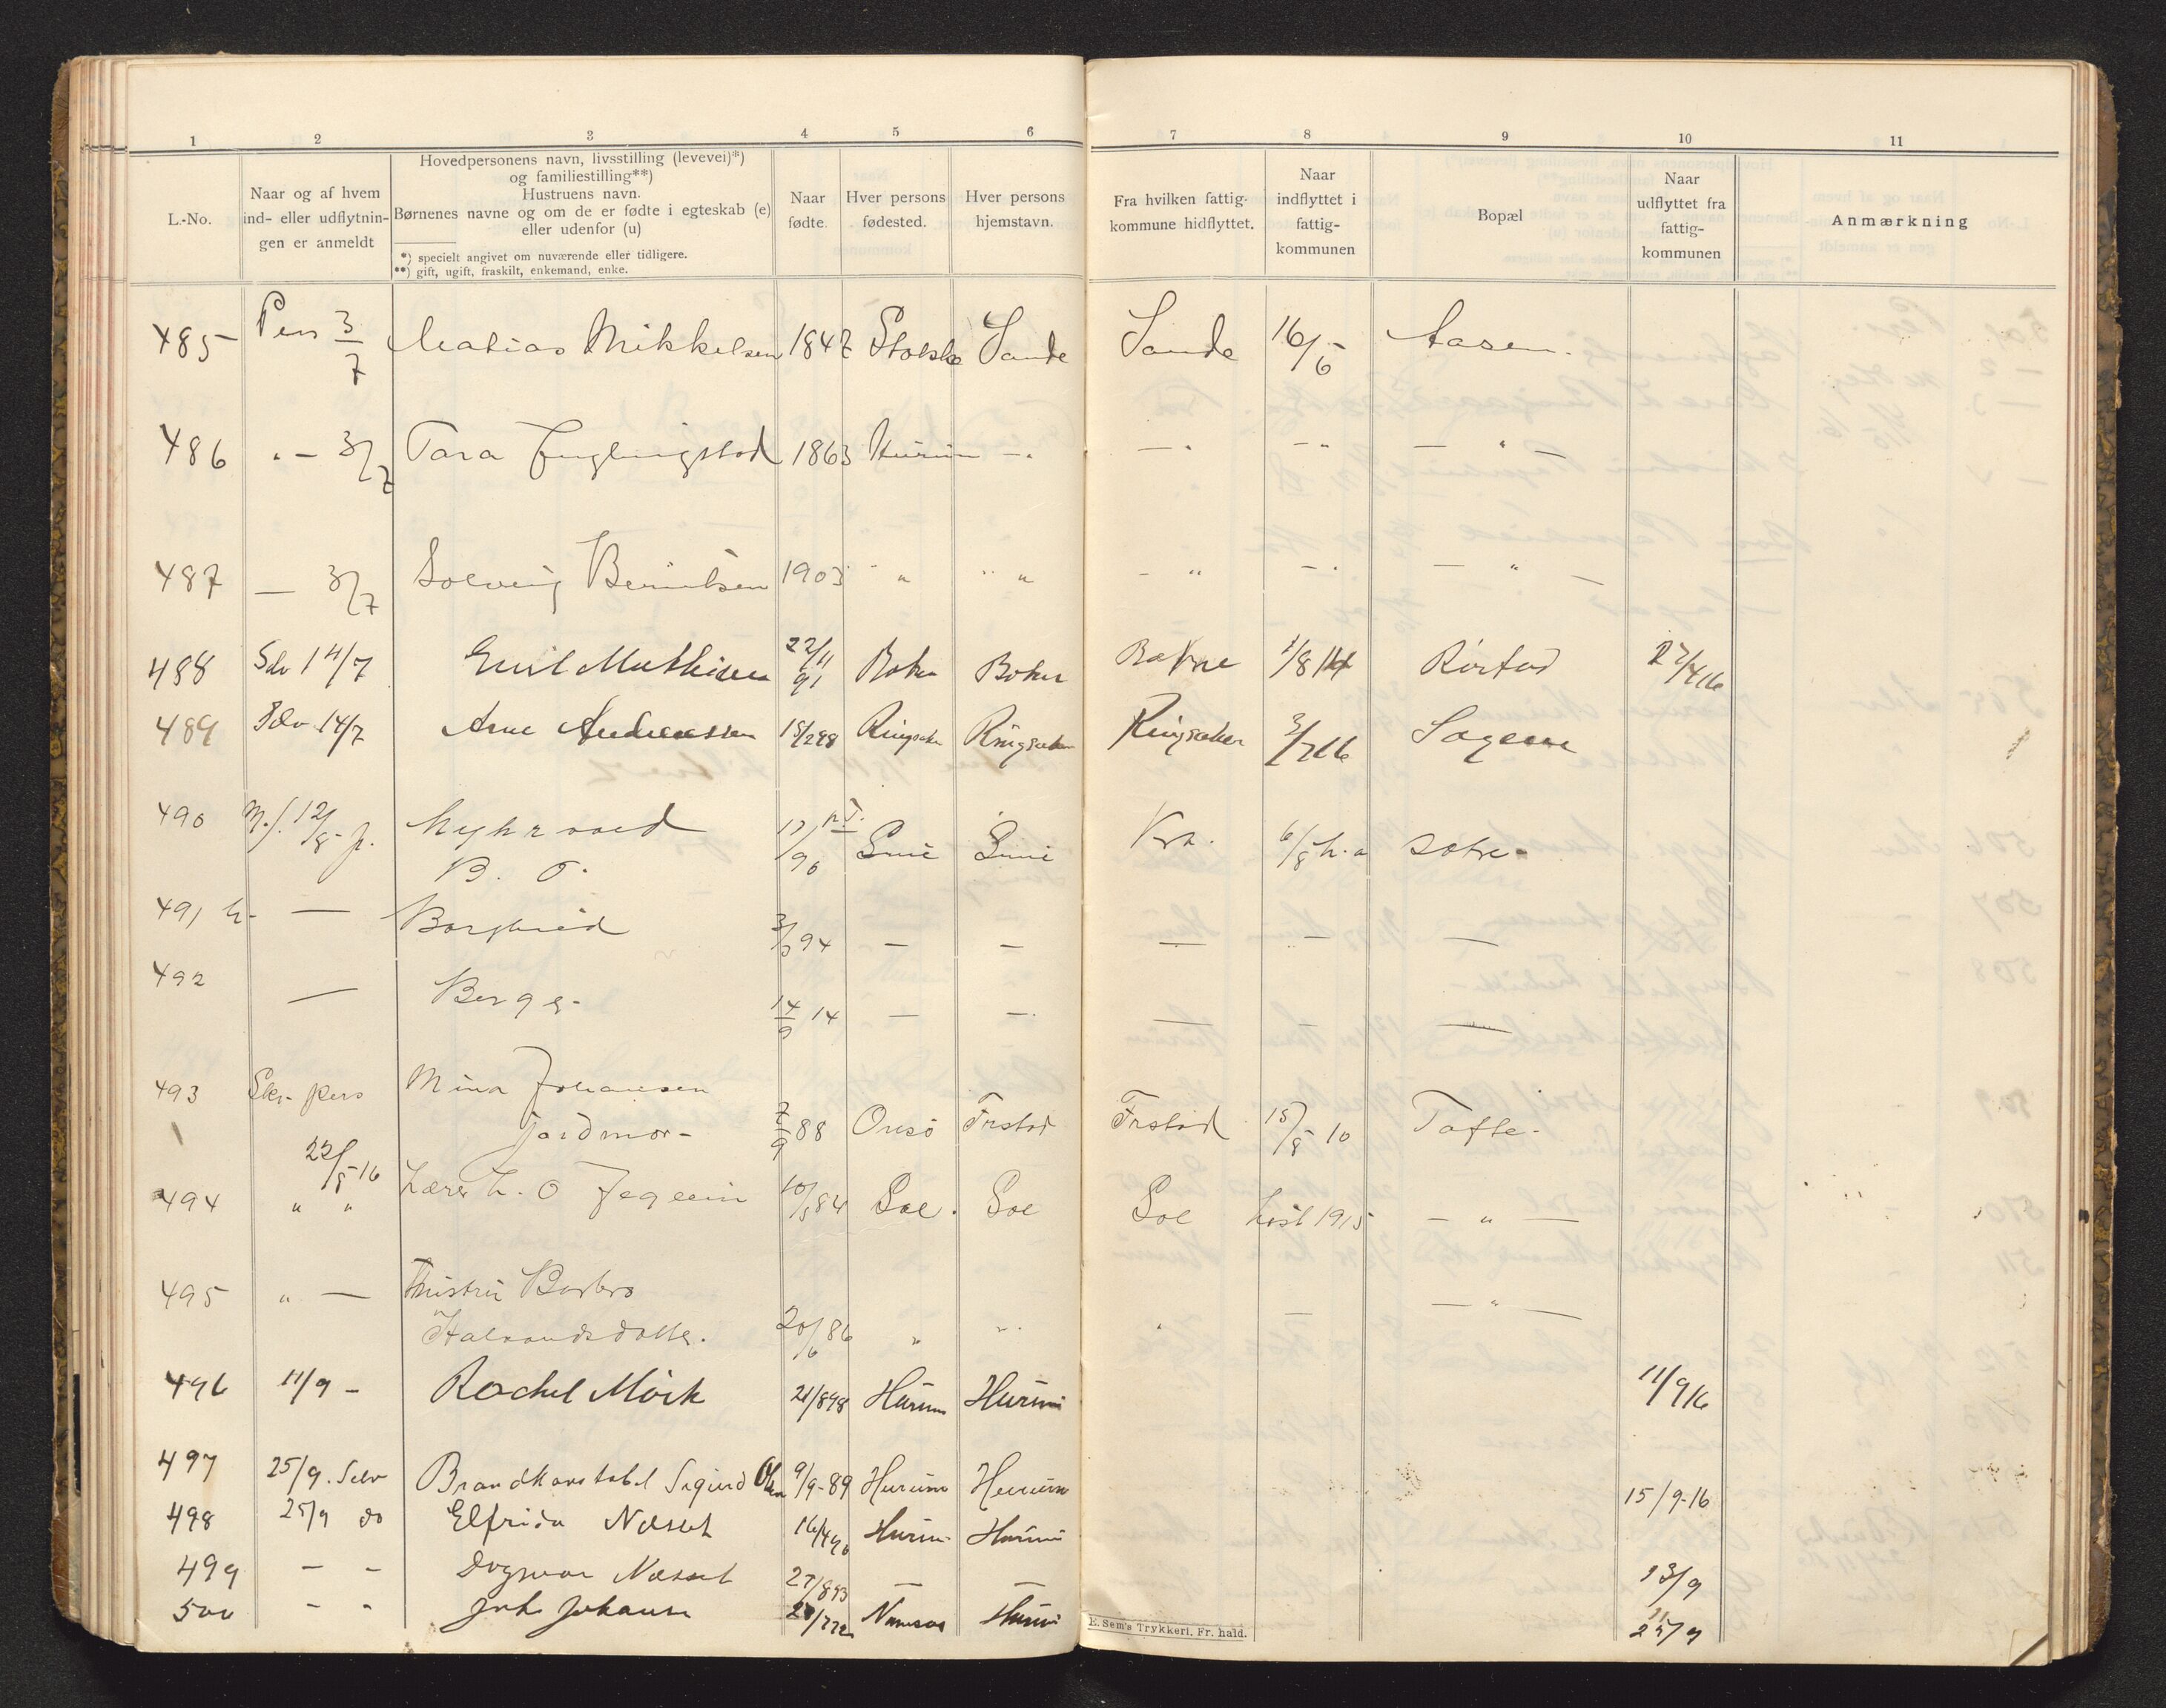 1 2 3 4 5 6 7 8 9 10 11
L.-No.
Naar og af hvem
ind- eller udflytnin-
gen er anmeldt
Hovedpersonens navn, livsstilling (levevei)*)
og familiestilling**)
Hustruens navn.
Børnenes navne og om de er fødte i egteskab (e)
eller udenfor (u)
*) specielt angivet om nuværende eller tidligere.
**) gift, ugift, fraskilt, enkemand, enke.
Naar
fødte.
Hver persons
fødested.
Hver persons
hjemstavn.
Fra hvilken fattig-
kommune hidflyttet.
Naar
indflyttet i
fattig-
kommunen
Bopæl
Naar
udflyttet fra
fattig-
kommunen
Anmærkning
485 Pers 3/7 Matias Mikkelsen 1847 Stokke Sande Sande 16/6 Aasen.
486 " — 3/7 Tara 1863 Hurum — " — " — " — " —
487 — 3/7 Solveig Berntsen 1903 " " " " - " — " — " —
488 Selv 14/7 Emil Mathisen 22/11 91 1/8 14 Rørtad 27/4 16
489 Selv 14/7 Arne Andreassen 15/2 98 Ringsaker Ringsaker Ringsaker 3/7 16 Sagene
490 12/8 Myhrvold
B. O. 17/ 90 Kra. 6/8 h. a Sætre
491 h — Borghild 3/3 94 — — — — —
492 — Berge 14/9 14 — — — — —
493 Skr. pers Mina Johansen
jordmor - 7/9 88 Onsø Frstad Frstad 15/8 10 Tofte.
22/8 16
494 " " Lærer H. O. 10/5 84 Gol. Gol Gol høst 1915 — " —
495 " — Hustru Barbro
Halvordsdatter. 20/6 86 " " " — — " —
496 11/9 - Rachel Mørk 21/8 98 Hurum Hurum 11/9 16
497 25/9. Selv Brandkonstabel Sigurd Olsen 9/9-89 Hurum Hurum 15/9-16
498 25/9 do Elfrida Næsset 16/4 96 Hurum Hurum
499 - - Dagmar Næsset 27/8 93 — — 13/9
500 - - Joh. Johansen Namsos Hurum 25/9
E. Sem's Trykkeri, Fr. hald.